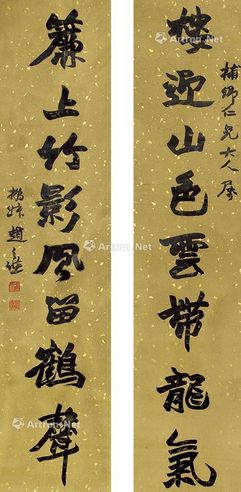 補卿仁兄大人屬
樓迎山色雲帶龍氣
簾上竹影風留鶴聲
撝叔趙之謙
Artron.Net
Artron.Net